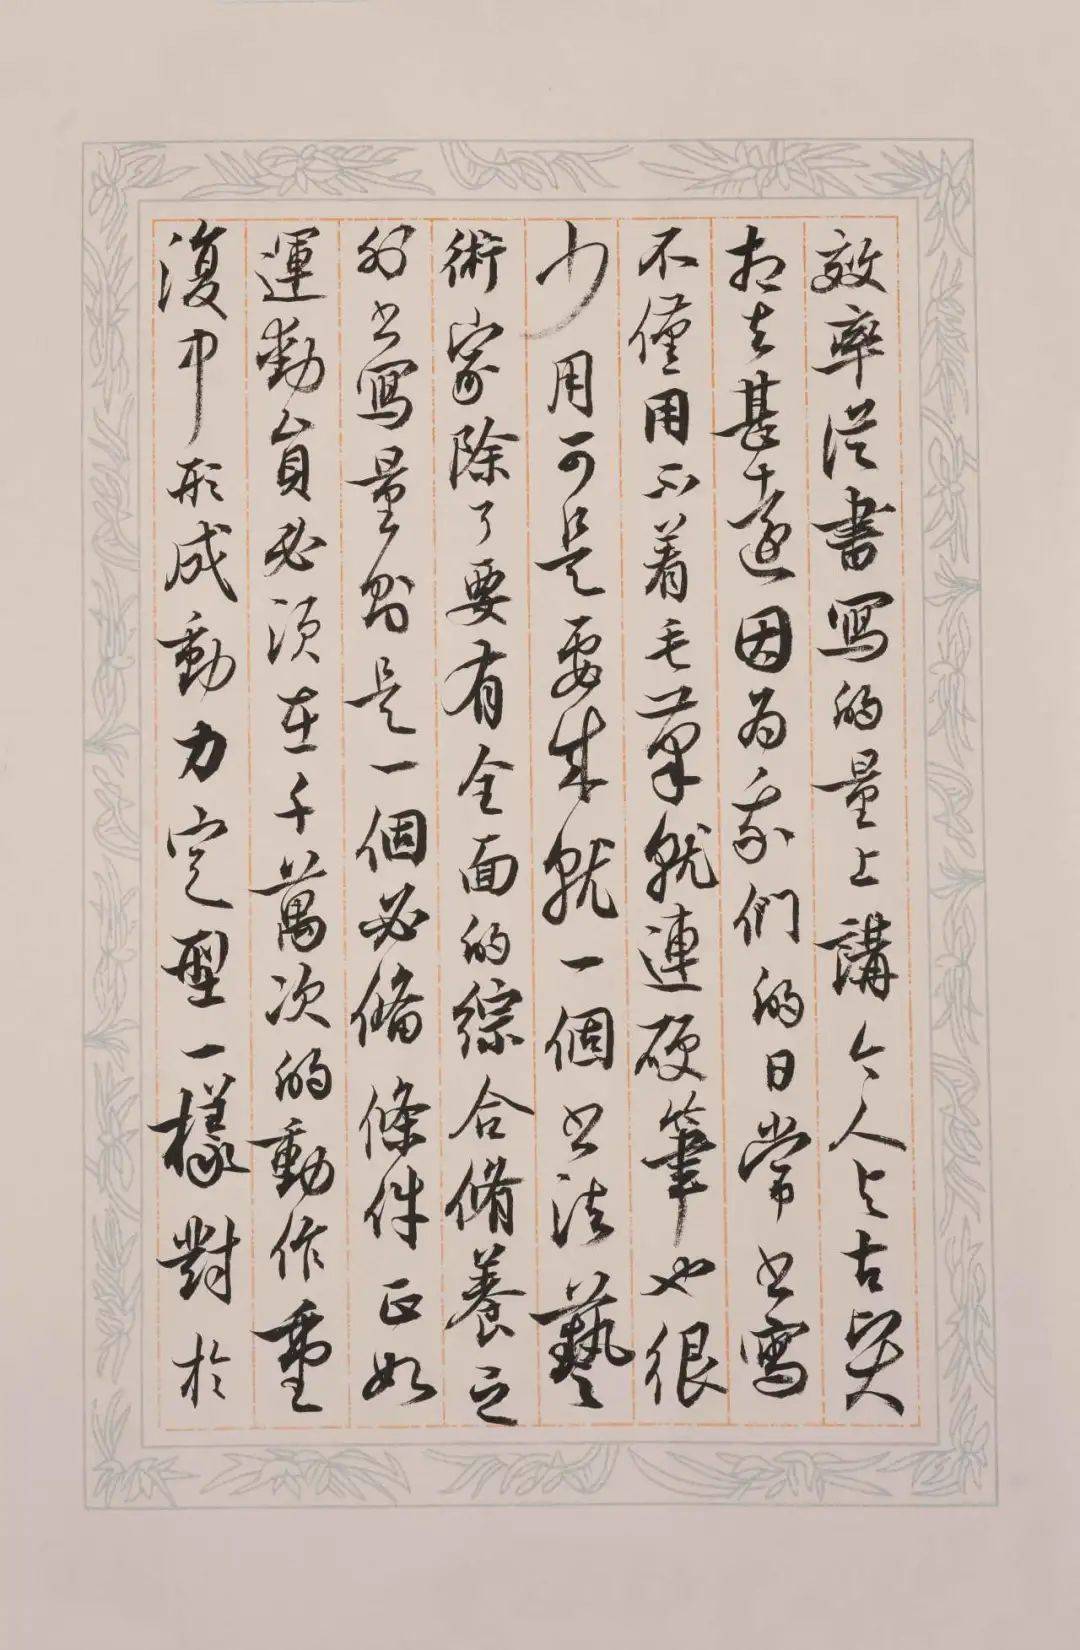 效率從書寫的量上講今人與古賢
相去甚遠因為我們的日常書寫
不僅用不着毛筆就連硬筆也很
少用可是要成就一個書法藝
術家除了要有全面的綜合脩養之
外書寫量則是一個必備條件正如
運動員必須在千萬次的動作重
復中形成動力定型一樣對於